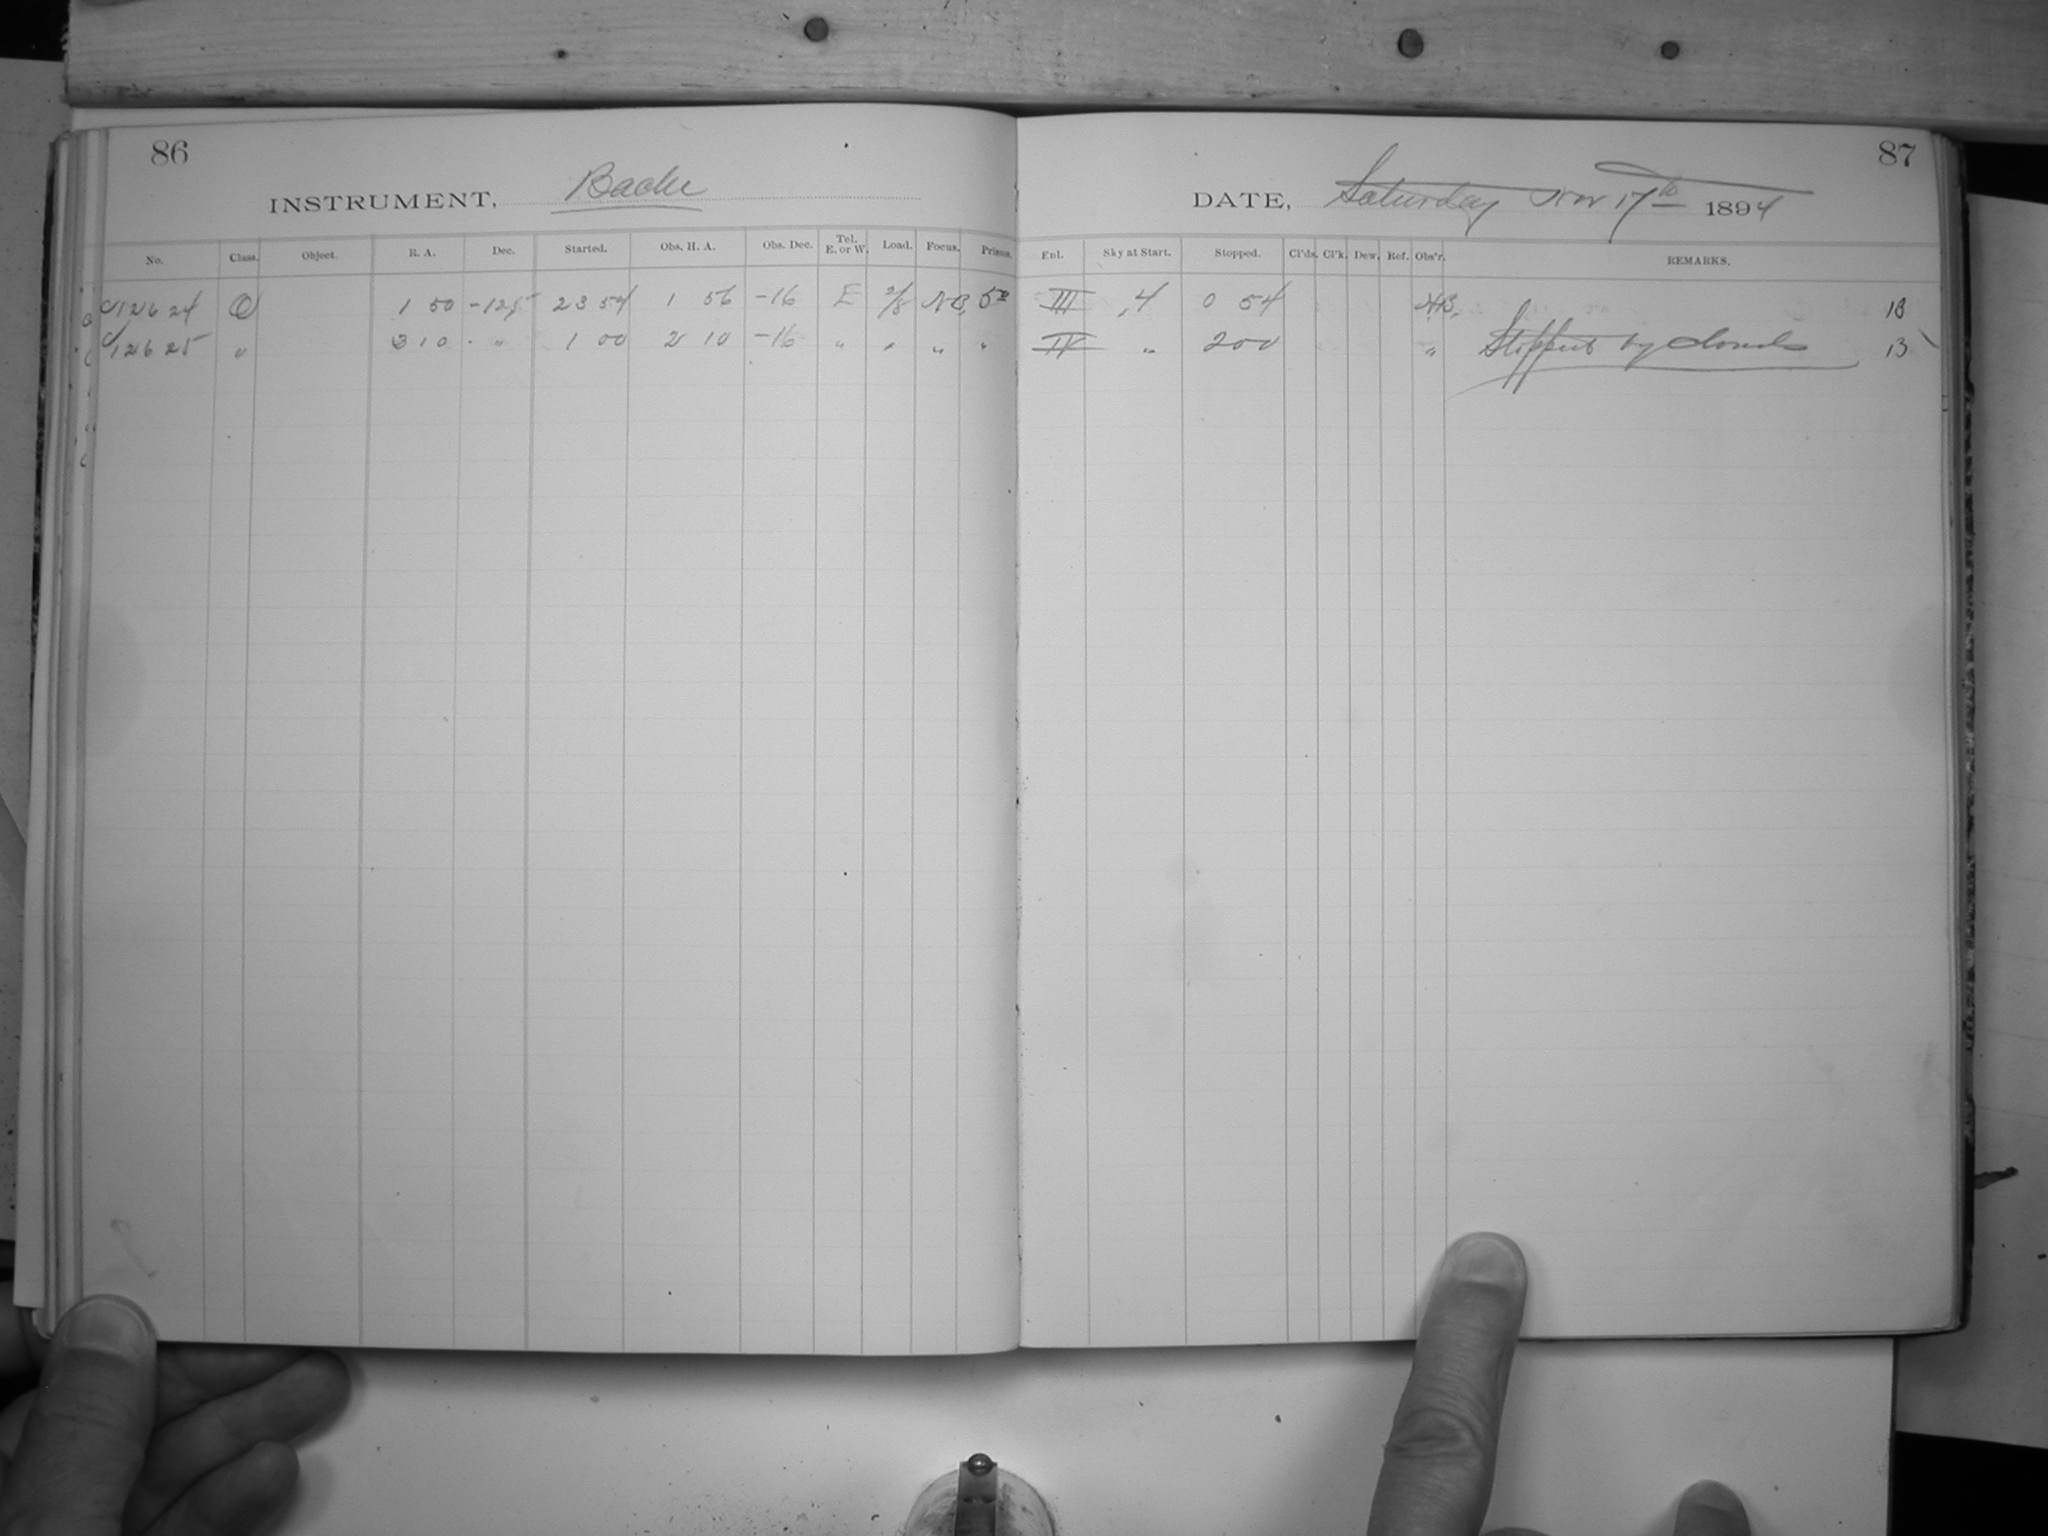 86
INSTRUMENT, Bache
No. Class. Object. R. A. Dec. Started. Obs. H. A. Obs. Dec. Tel. E. or W. Load. Focus. Prisms.
12624 O 1 50 -12.5 23 54 1 56 -16 E 2/3
12625 " 3 10 " 1 00 2 10 -16 " " " "
87
DATE, Saturday Nov 17th 1894
Enl. Sky at Start. Stopped. Cl'ds. Cl'k. Dew. Ref. Obs'r. REMARKS.
III ,4 0 54 13
IV " 2 00 " Stopped by Clouds 13